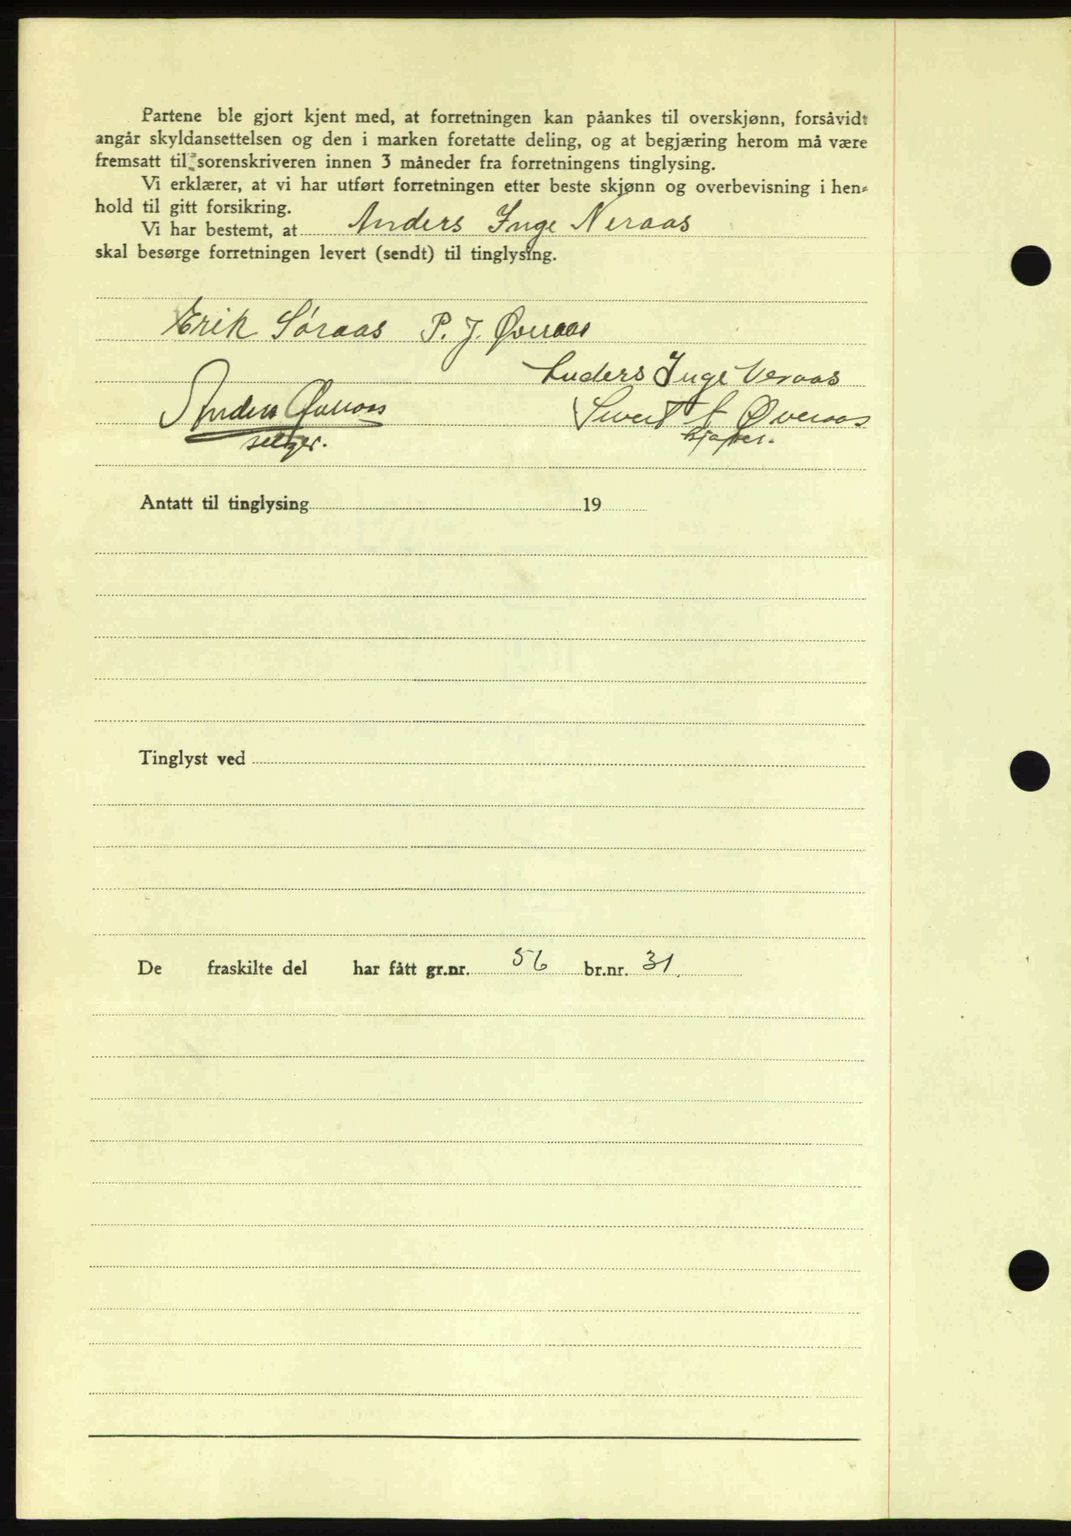 Partene ble gjort kjent med, at forretningen kan påankes til overskjønn, forsåvidt
angår skyldansettelsen og den i marken foretatte deling, og at begjæring herom må være
fremsatt til sorenskriveren innen 3 måneder fra forretningens tinglysing.
Vi erklærer, at vi har utført forretningen etter beste skjønn og overbevisning i hen-
hold til gitt forsikring.
Vi har bestemt, at Anders Inge Neraas
skal besørge forretningen levert (sendt) til tinglysing.
Erik Søraas P. J. Øveraas
Anders Inge Neraas
Anders Øveraas Sivert J Øveraas
selger. kjøper.
Antatt til tinglysing 19
Tinglyst ved
De fraskilte del har fått gr.nr. 56 br.nr. 31.